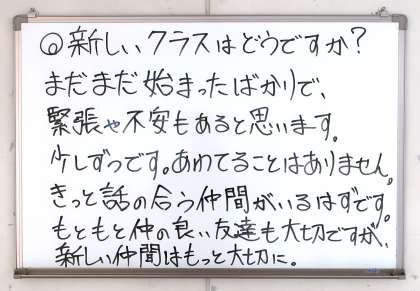 ◎新しいクラスはどうですか?
まだまだ始まったばかりで、
緊張や不安もあると思います。
少しずつです。あわてることはありません。
きっと話の合う仲間がいるはずです。
もともと仲の良い友達も大切ですが、
新しい仲間はもっと大切に。